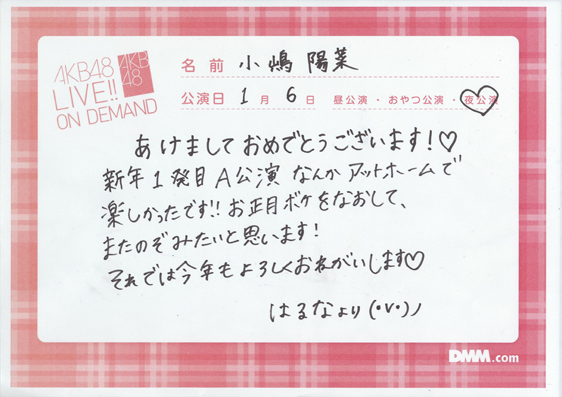 AKB48
LIVE!!
ON DEMAND
AKB
48
名前 小嶋 陽菜
公演日 1月 6日 昼公演・おやつ公演・夜公演
あけましておめでとうございます!♡
新年1発目A公演 なんかアットホームで
楽しかったです!!お正月ボケをなおして、
またのぞみたいと思います!
それでは今年もよろしくおねがいします♡
はるなより(・v・)ノ
DMM.com